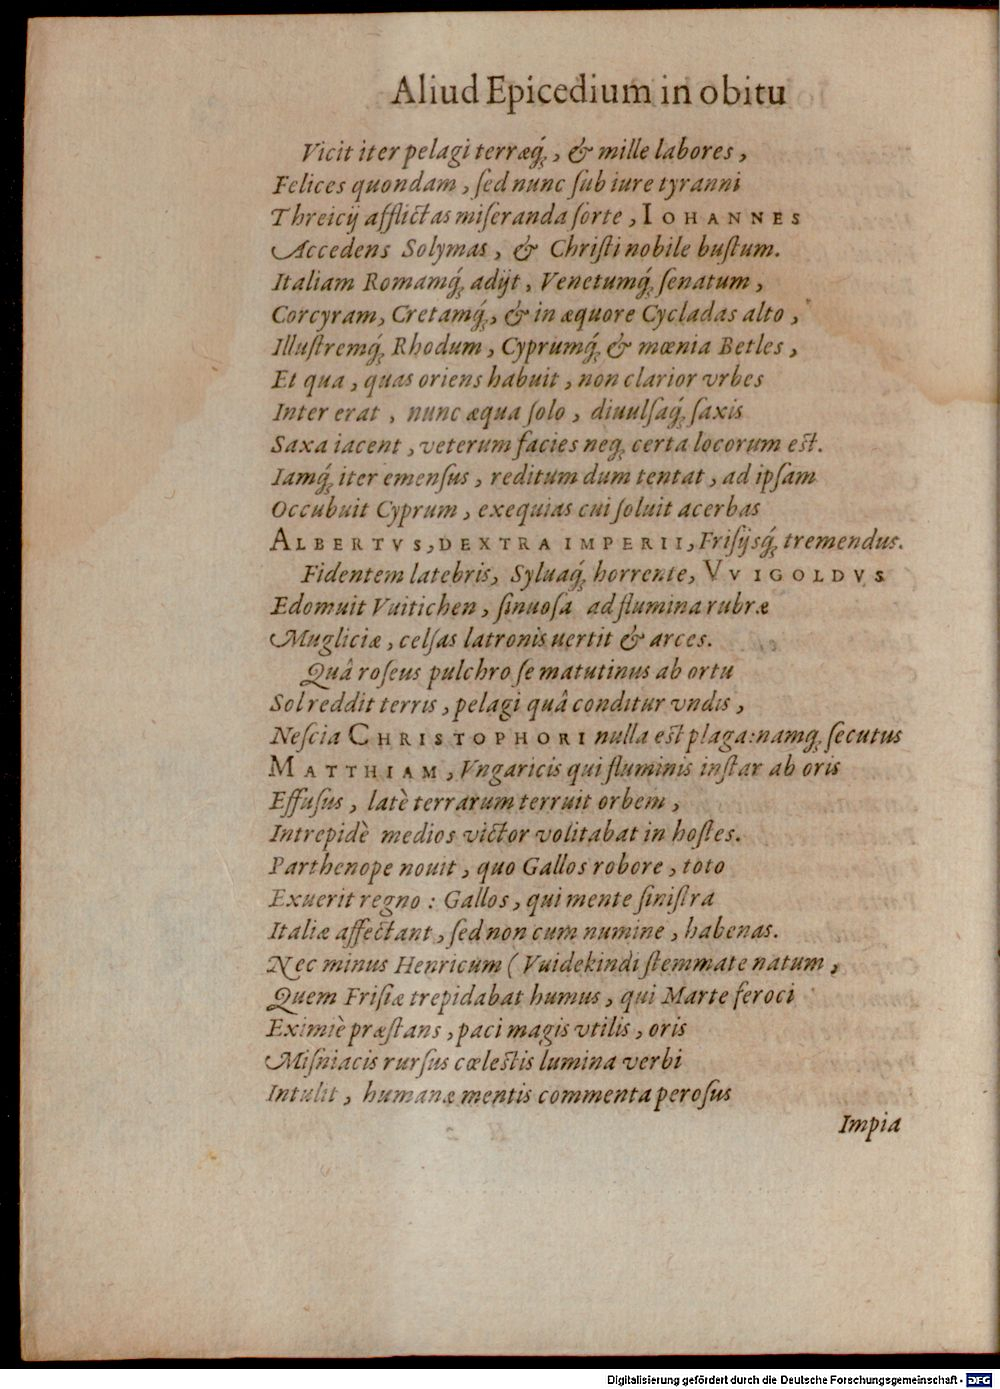 Aliud Epicedium in obitu
Vicit iter pelagi terræq́ꝫ, & mille labores,
Felices quondam, ſed nunc ſub iure tyranni
Threicij afflictas miſeranda ſorte, IOHANNES
Accedens Solymas, & Chriſti nobile buſtum.
Italiam Romamq́ꝫ adijt, Venetumq́ꝫ ſenatum,
Corcyram, Cretamq́ꝫ, & in æquore Cycladas alto,
Illuſtremq́ꝫ Rhodum, Cyprumq́ꝫ & mœnia Betles,
Et qua, quas oriens habuit, non clarior vrbes
Inter erat, nunc æqua ſolo, diuulſaq́ꝫ ſaxis
Saxa iacent, veterum facies neqꝫ certa locorum est.
Iamq́ꝫ iter emenſus, reditum dum tentat, ad ipſam
Occubuit Cyprum, exequias cui ſoluit acerbas
ALBERTVS, DEXTRA IMPERII, Friſijsq́ꝫ tremendus.
Fidentem latebris, Syluaq́ꝫ horrente, VVIGOLDVS
Edomuit Vuitichen, ſinuoſa ad flumina rubræ
Mugliciæ, celſas latronis uertit & arces.
Quâ roſeus pulchro ſe matutinus ab ortu
Sol reddit terris, pelagi quâ conditur vndis,
Neſcia CHRISTOPHORI nulla est plaga: namqꝫ ſecutus
MATTHIAM, Vngaricis qui fluminis inſtar ab oris
Effuſus, latè terrarum terruit orbem,
Intrepidè medios victor volitabat in hoſtes.
Parthenope nouit, quo Gallos robore, toto
Exuerit regno: Gallos, qui mente ſiniſtra
Italiæ affectant, ſed non cum numine, habenas.
Nec minus Henricum (Vuidekindi ſtemmate natum,
Quem Friſiæ trepidabat humus, qui Marte feroci
Eximiè præſtans, paci magis vtilis, oris
Miſniacis rurſus cœlestis lumina verbi
Intulit, humanæ mentis commenta peroſus
Impia
Digitalisierung gefördert durch die Deutsche Forschungsgemeinschaft - DFG